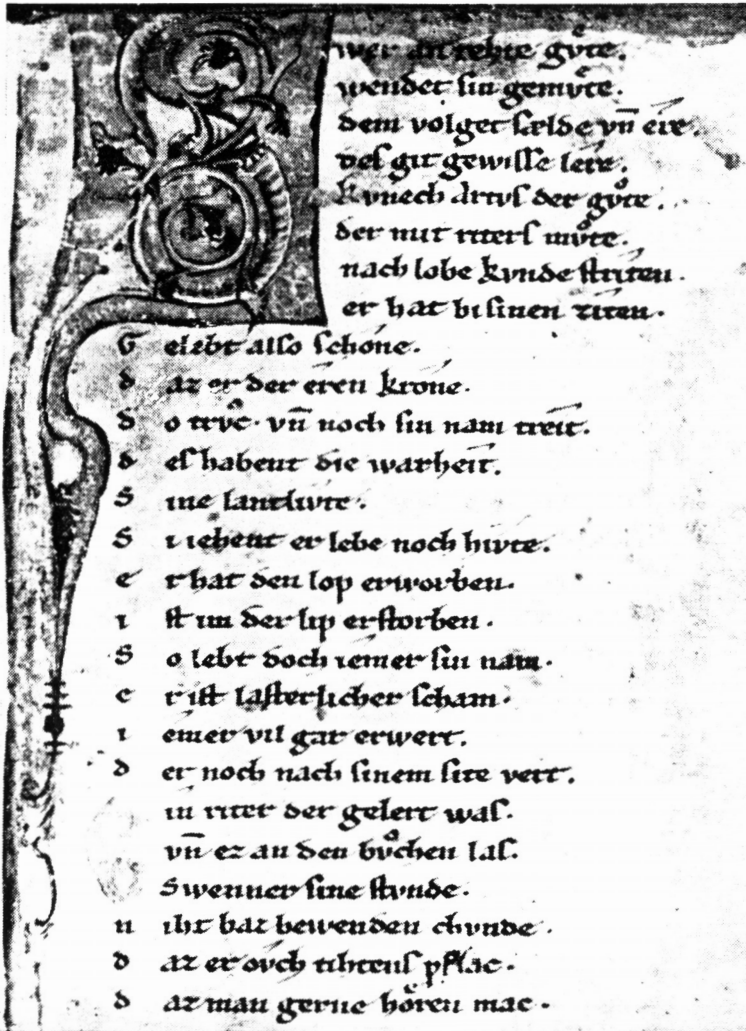 Swer an rehte gvͦte.
wendet sin gemvͤte.
dem volget sælde vn̄ ere.
des git gewisse lere.
kvnech Artvs der gvͦte.
der mit riters mvͦte.
nach lobe kvnde striten.
er hat bi sinen ziten.
G elebt also schone.
d az er der eren krone.
d o trvͦc. vn̄ noch sin nam treit.
d es habent die warheit.
S ine lantlivte.
S i iehent er lebe noch hivte.
e r hat den lop erworben.
i st im der lip erstorben.
S o lebt doch iemer sin nam.
e r ist lasterlicher scham.
i emer vil gar erwert.
d er noch nach sinem site vert.
in riter der gelert was.
vn̄ ez an den bvͦchen las.
Swenner sine stvnde.
n iht baz bewenden chvnde.
d az er ovch tihtens pflac.
d az man gerne hoͤren mac.